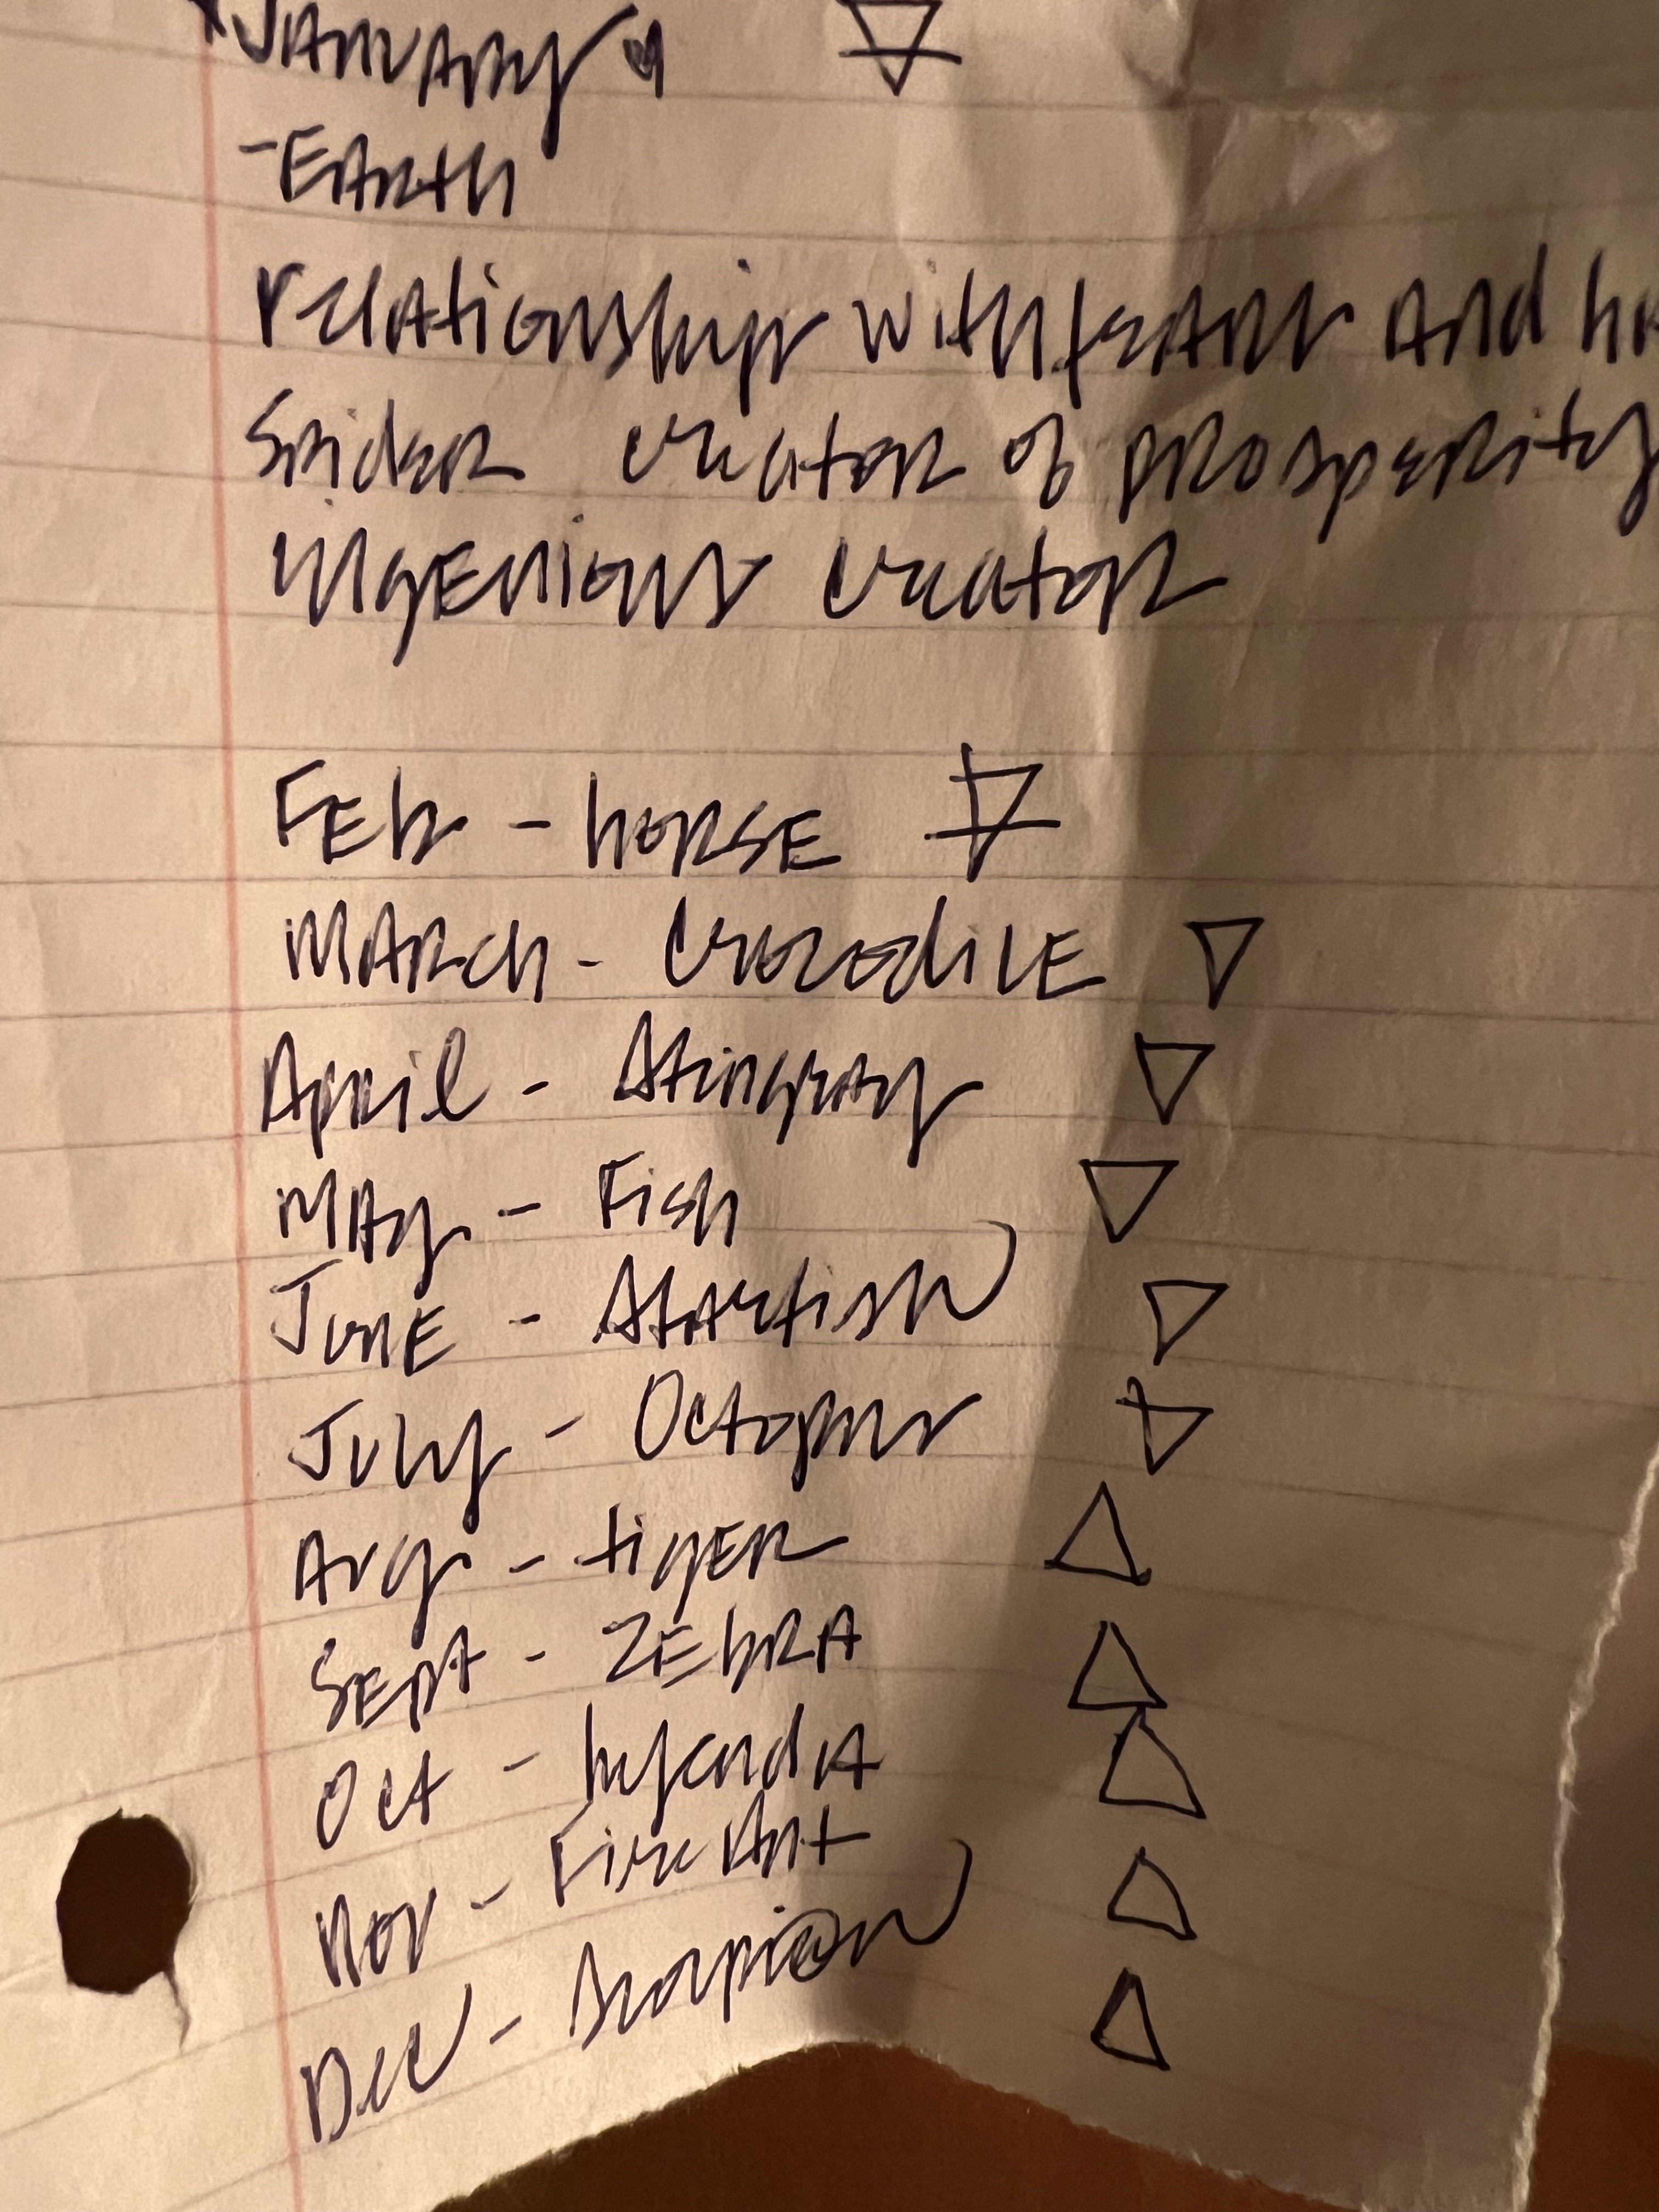 January 9
-Earth
relationship with fears and
Spider creator of prosperity
ingenious creator
Feb - horse
March - Crocodile
April - Stingray
May - Fish
June - Starfish
July - Octopus
Aug - tiger
Sept - Zebra
Oct -
Nov - Fire Ant
Dec - Scorpion